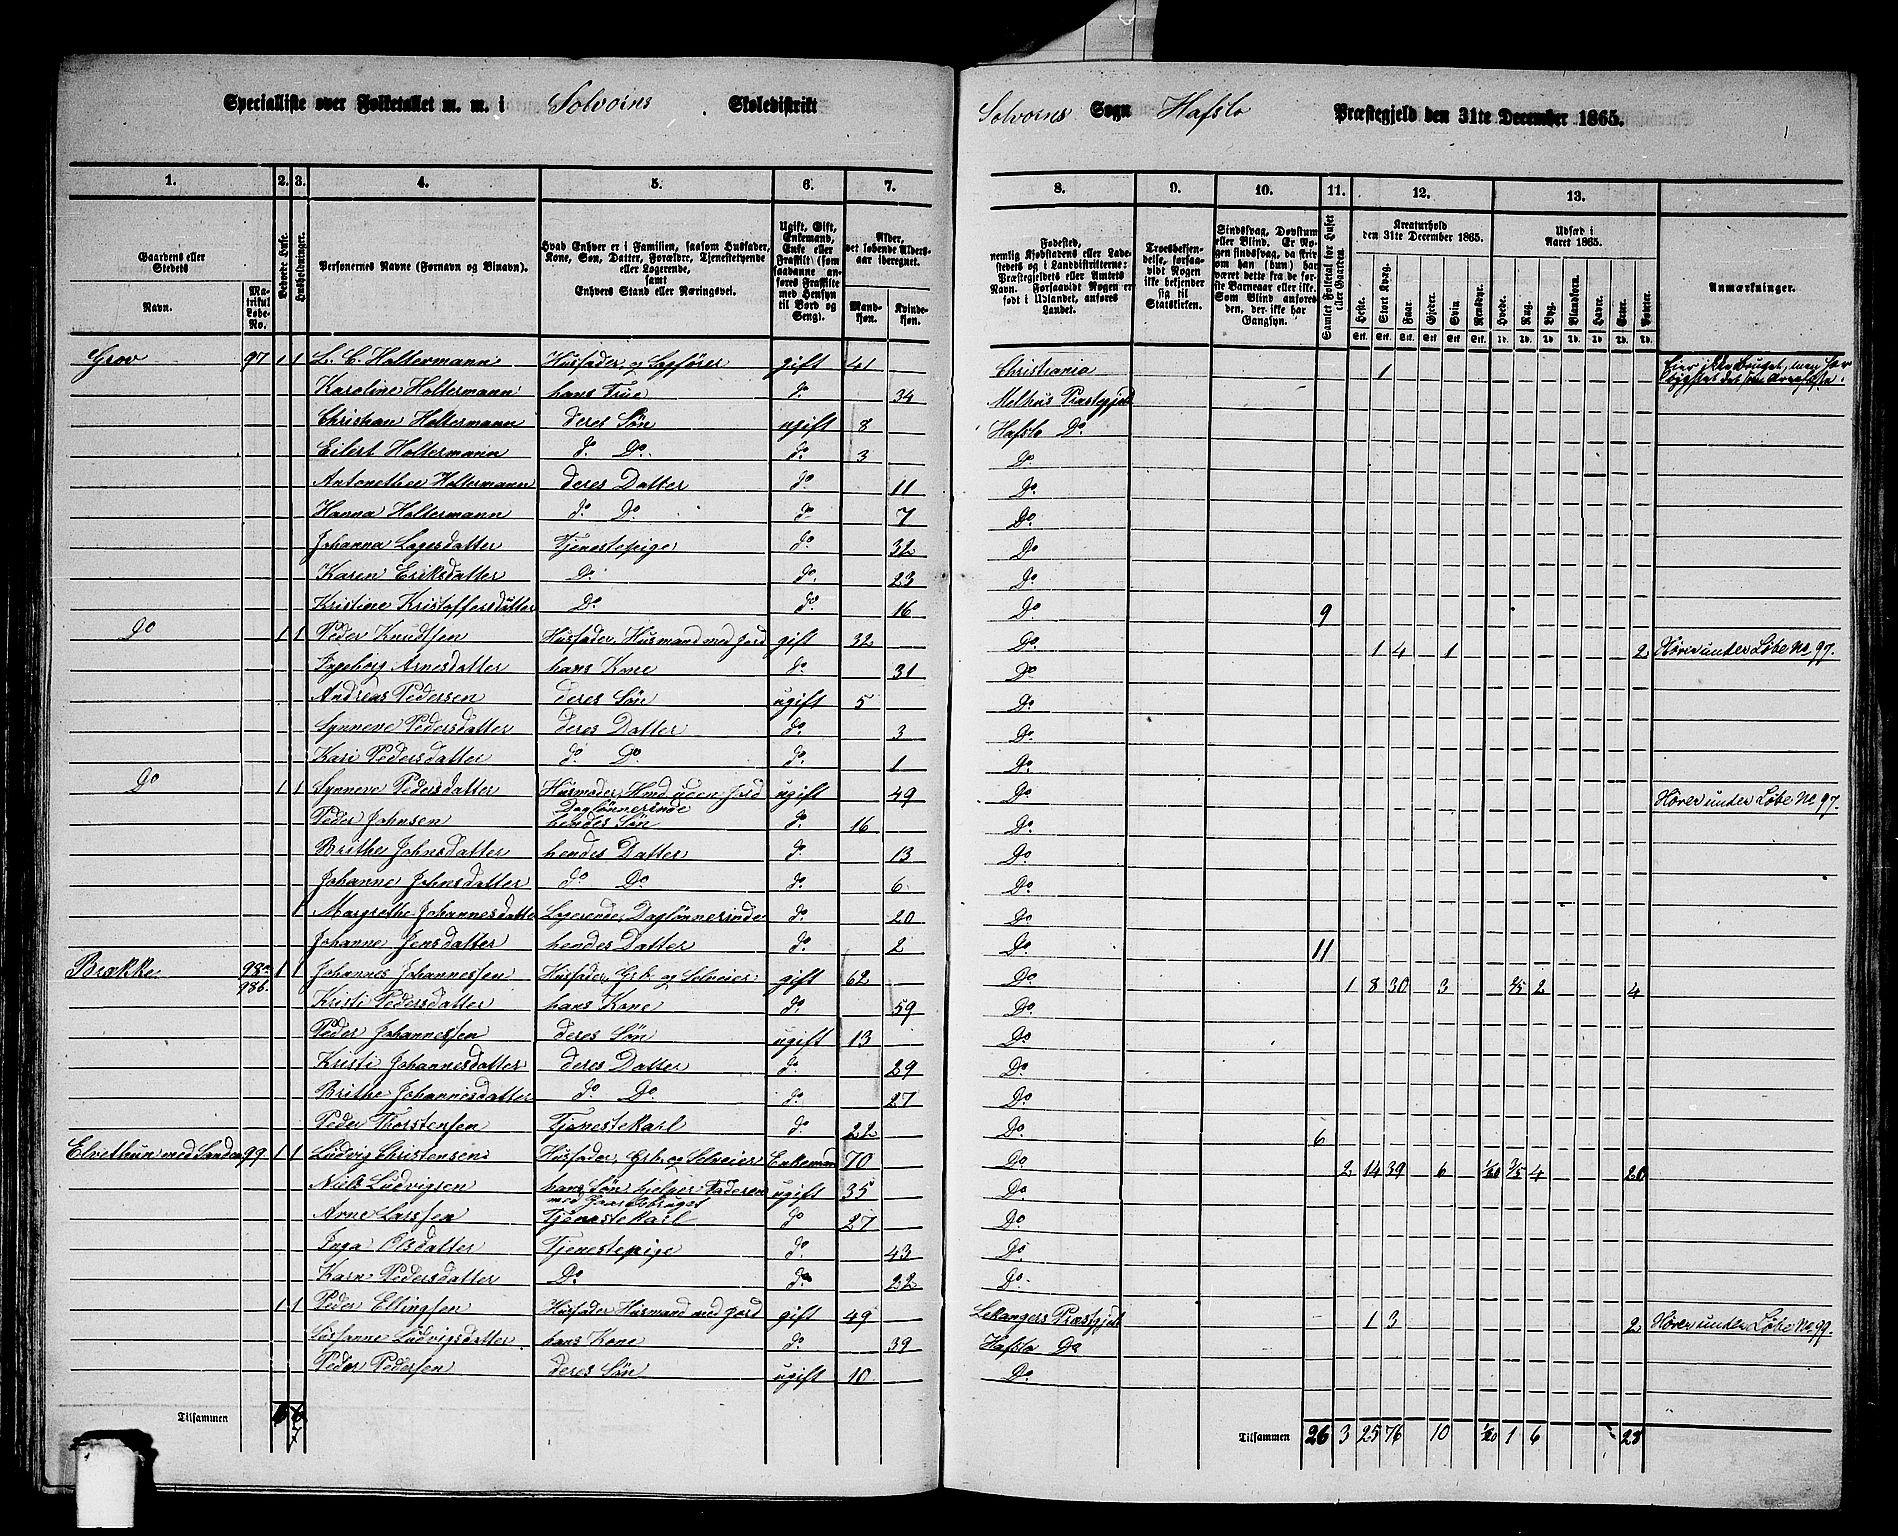 Specialliste over Folketallet m. m. i Solvorns Skoledistrikt
Solvorns Sogn Hafslo Præstegjeld den 31te December 1865.
1. 2. 3. 4. 5. 6. 7. 8. 9. 10. 11. 12. 13.
Gaardens eller Stedets
Navn.
Matrikul Løbe-No.
Beboede Huse.
Husholdninger.
Personernes Navne (Fornavn og Binavn).
Hvad Enhver er i Familien, saasom Husfader, Kone, Søn, Datter, Forældre, Tjenestetyende eller Logerende, samt Enhvers Stand eller Næringsvei.
Ugift, Gift, Enkemand, Enke eller Fraskilt (som saadanne anføres Fraskilte med Hensyn til Bord og Seng).
Alder, det løbende Aldersaar iberegnet.
Mandkjøn. Kvindekjøn.
Fødested, nemlig Kjøbstadens eller Ladestedets og i Landdistrikterne: Præstegjeldets eller Amtets Navn. Forsaavidt Nogen er født i Udlandet, anføres Landet.
Troesbekjendelse, forsaavidt Nogen ikke bekjender sig til Statskirken.
Sindssvag, Døvstum eller Blind. Er Nogen sindssvag, da skriv om han (hun) har været dette fra de første Barneaar eller ikke. Som Blind anføres den, der ikke har Gangsyn.
Samlet Folketal for Huset eller Gaarden.
Kreaturhold den 31te December 1865.
Heste. Stort Kvæg. Faar. Gjeder. Svin. Rensdyr.
Udsæd i Aaret 1865.
Hvede. Rug. Byg. Blandkorn. Havre. Erter. Poteter.
Anmærkninger.
Grov 97 1 1 L. C. Holtermann Husfader og Sagfører gift 41 Christiania 1
Karoline Holtermann hans Frue do 34 Melhus Præstgjeld
Christian Holtermann deres Søn ugift 8 Hafslo Do
Eilert Holtermann do Do do 3 Do
Antonethe Holtermann deres Datter do 11 Do
Hanna Holtermann do Do do 7 Do
Johanna Lagesdatter Tjenestepige do 32 Do
Karen Eriksdatter Do do 23 Do
Kristine Kristoffersdatter Do do 16 Do 9
Do 1 1 Peder Knudsen Husfader, Husmand med Jord gift 32 Do 1 4 1 2 Hører under Løbe No 97.
Ingeborg Arnesdatter hans Kone do 31 Do
Andreas Pedersen deres Søn ugift 5 Do
Synneve Pedersdatter deres Datter do 3 Do
Kari Pedersdatter do Do do 1 Do
Do 1 1 Synneve Pedersdatter Husmoder, Hmd uden Jord ugift 49 Do Hører under Løbe No 97.
Daglønnerinde
Peder Johnsen hendes Søn do 16 Do
Brithe Johnsdatter hendes Datter do 13 Do
Johanne Johnsdatter do Do do 6 Do
1 Margrethe Johannesdatter Logerende, Daglønnerinde do 20 Do
Johanne Jensdatter hendes Datter do 2 Do 11
Brække 98a 1 1 Johannes Johannessen Husfader, Grb. og Selveier gift 62 Do 1 8 30 3 2/5 2 4
98b. Kristi Pedersdatter hans Kone do 59 Do
Peder Johannessen deres Søn ugift 13 Do
Kristi Johannesdatter deres Datter do 29 Do
Brithe Johannesdatter do Do do 27 Do
Peder Thorstensen Tjenestekarl do 22 Do 6
Elvethun med Sanden 99 1 1 Ludvig Christensen Husfader, Grb. og Selveier Enkemand 70 Do 2 14 39 6 1/20 3/5 4 20
Niels Ludvigsen hans Søn, hjelper Faderen ugift 35 Do
med Gaardsbruget
Arne Larssen Tjenestekarl do 27 Do
Inga Olsdatter Tjenestepige do 43 Do
Karn Pedersdatter Do do 22 Do
1 1 Peder Ellingsen Husfader Husmand med Jord gift 49 Lekangers Præstgjeld 1 3 2 Hører under Løbe No 99.
Susanne Ludvigsdatter hans Kone do 39 Hafslo Do
Peder Pedersen deres Søn ugift 10 Do
Tilsammen 7
Tilsammen 26 3 25 76 10 1/20 1 6 28